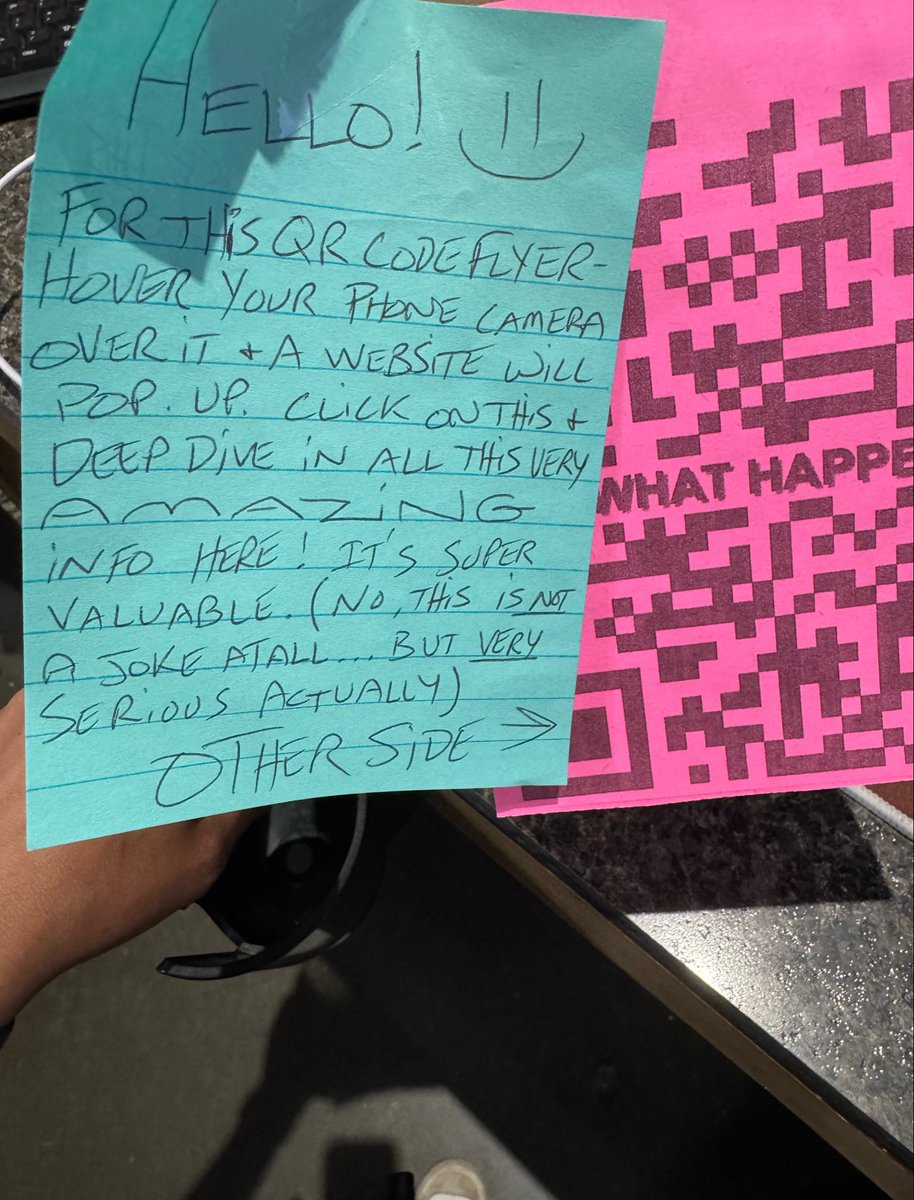 HELLO!
FOR THIS QR CODE FLYER-
HOVER YOUR PHONE CAMERA
OVER IT + A WEBSITE WILL
POP. UP. CLICK ON THIS +
DEEP DIVE IN ALL THIS VERY
AMAZING
INFO HERE! IT'S SUPER
VALUABLE. (NO, THIS IS NOT
A JOKE AT ALL... BUT VERY
SERIOUS ACTUALLY)
OTHER SIDE →
WHAT HAPPE